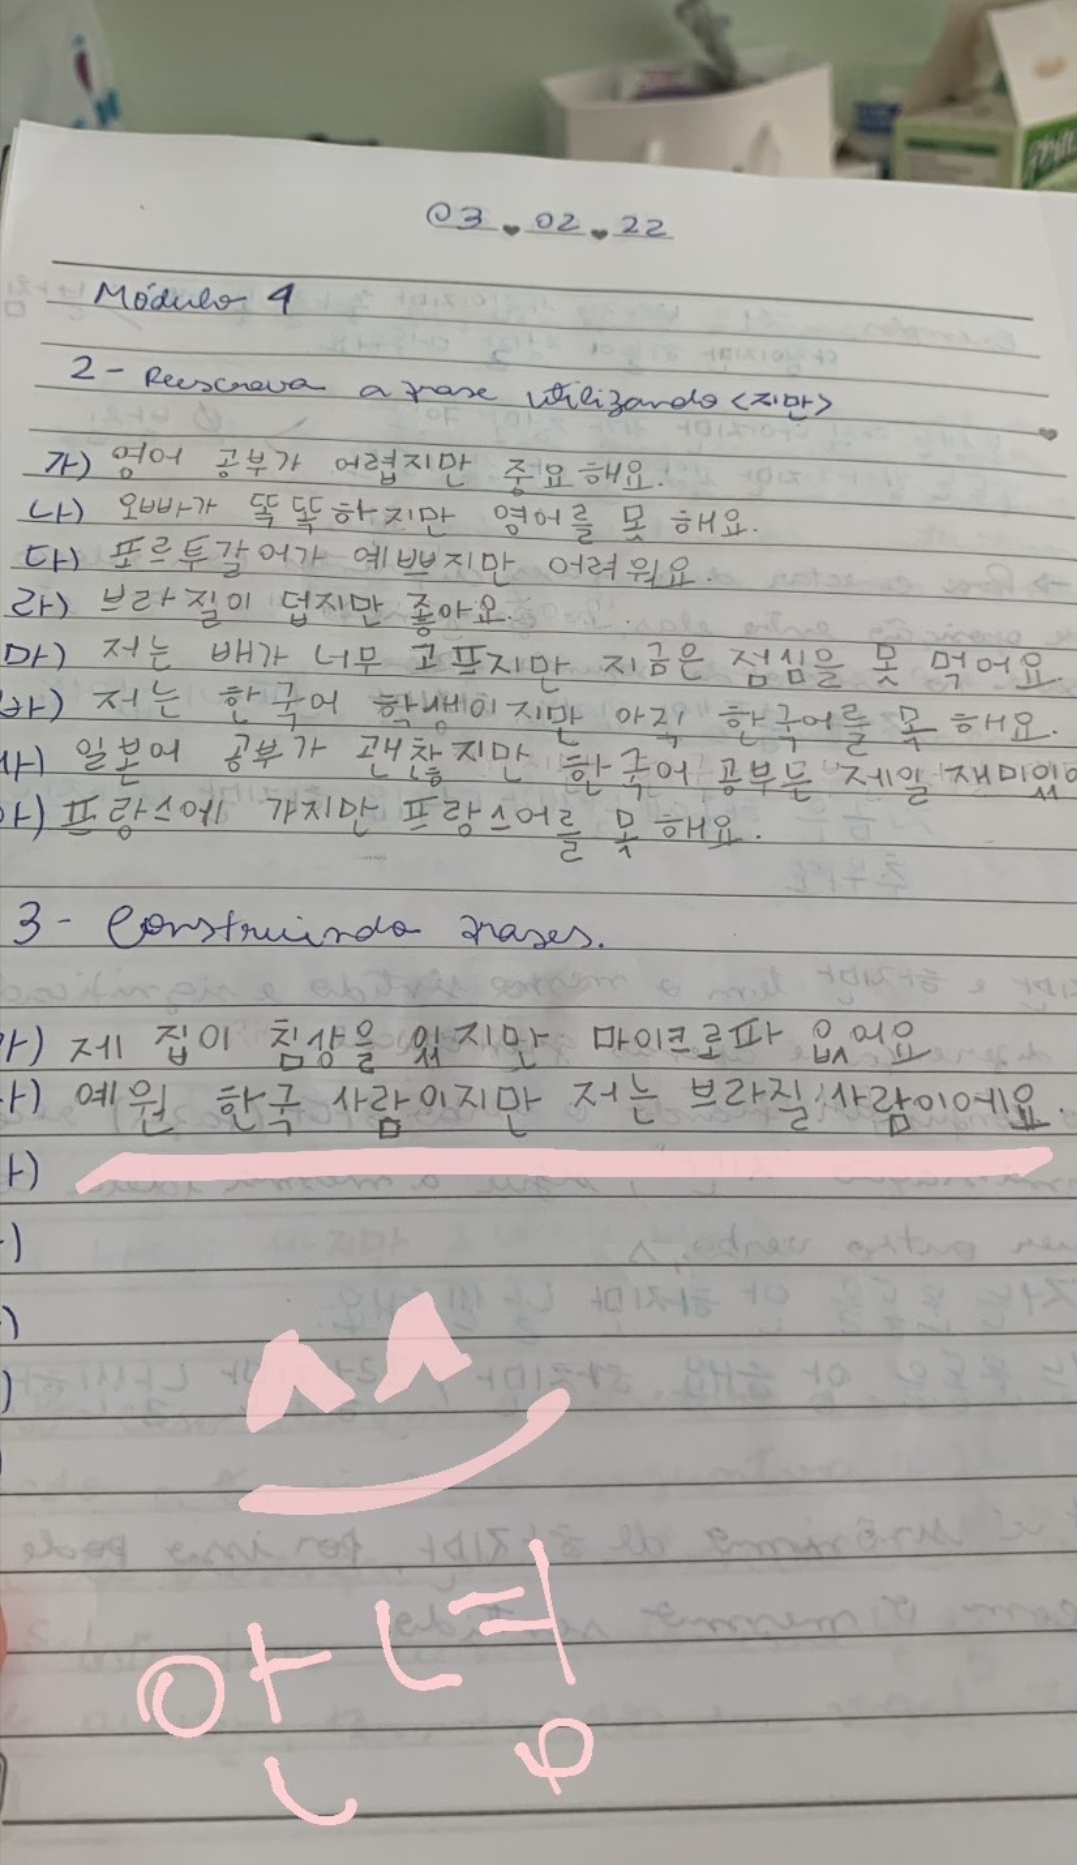 03.02.22
Módulo 4
2 - Reescreva a frase utilizando <지만>
가) 영어 공부가 어렵지만 중요해요.
나) 오빠가 똑똑하지만 영어를 못 해요.
다) 포르투갈어가 예쁘지만 어려워요.
라) 브라질이 덥지만 좋아요.
마) 저는 배가 너무 고프지만 지금은 점심을 못 먹어요
바) 저는 한국어 학생이지만 아직 한국어를 못 해요.
사) 일본어 공부가 괜찮지만 한국어 공부는 제일 재미있어
아) 프랑스에 가지만 프랑스어를 못 해요.
3 - Construindo frases.
가) 제 집이 침상을 있지만 마이크로파 없어요
나) 예원 한국 사람이지만 저는 브라질 사람이에요.
안녕